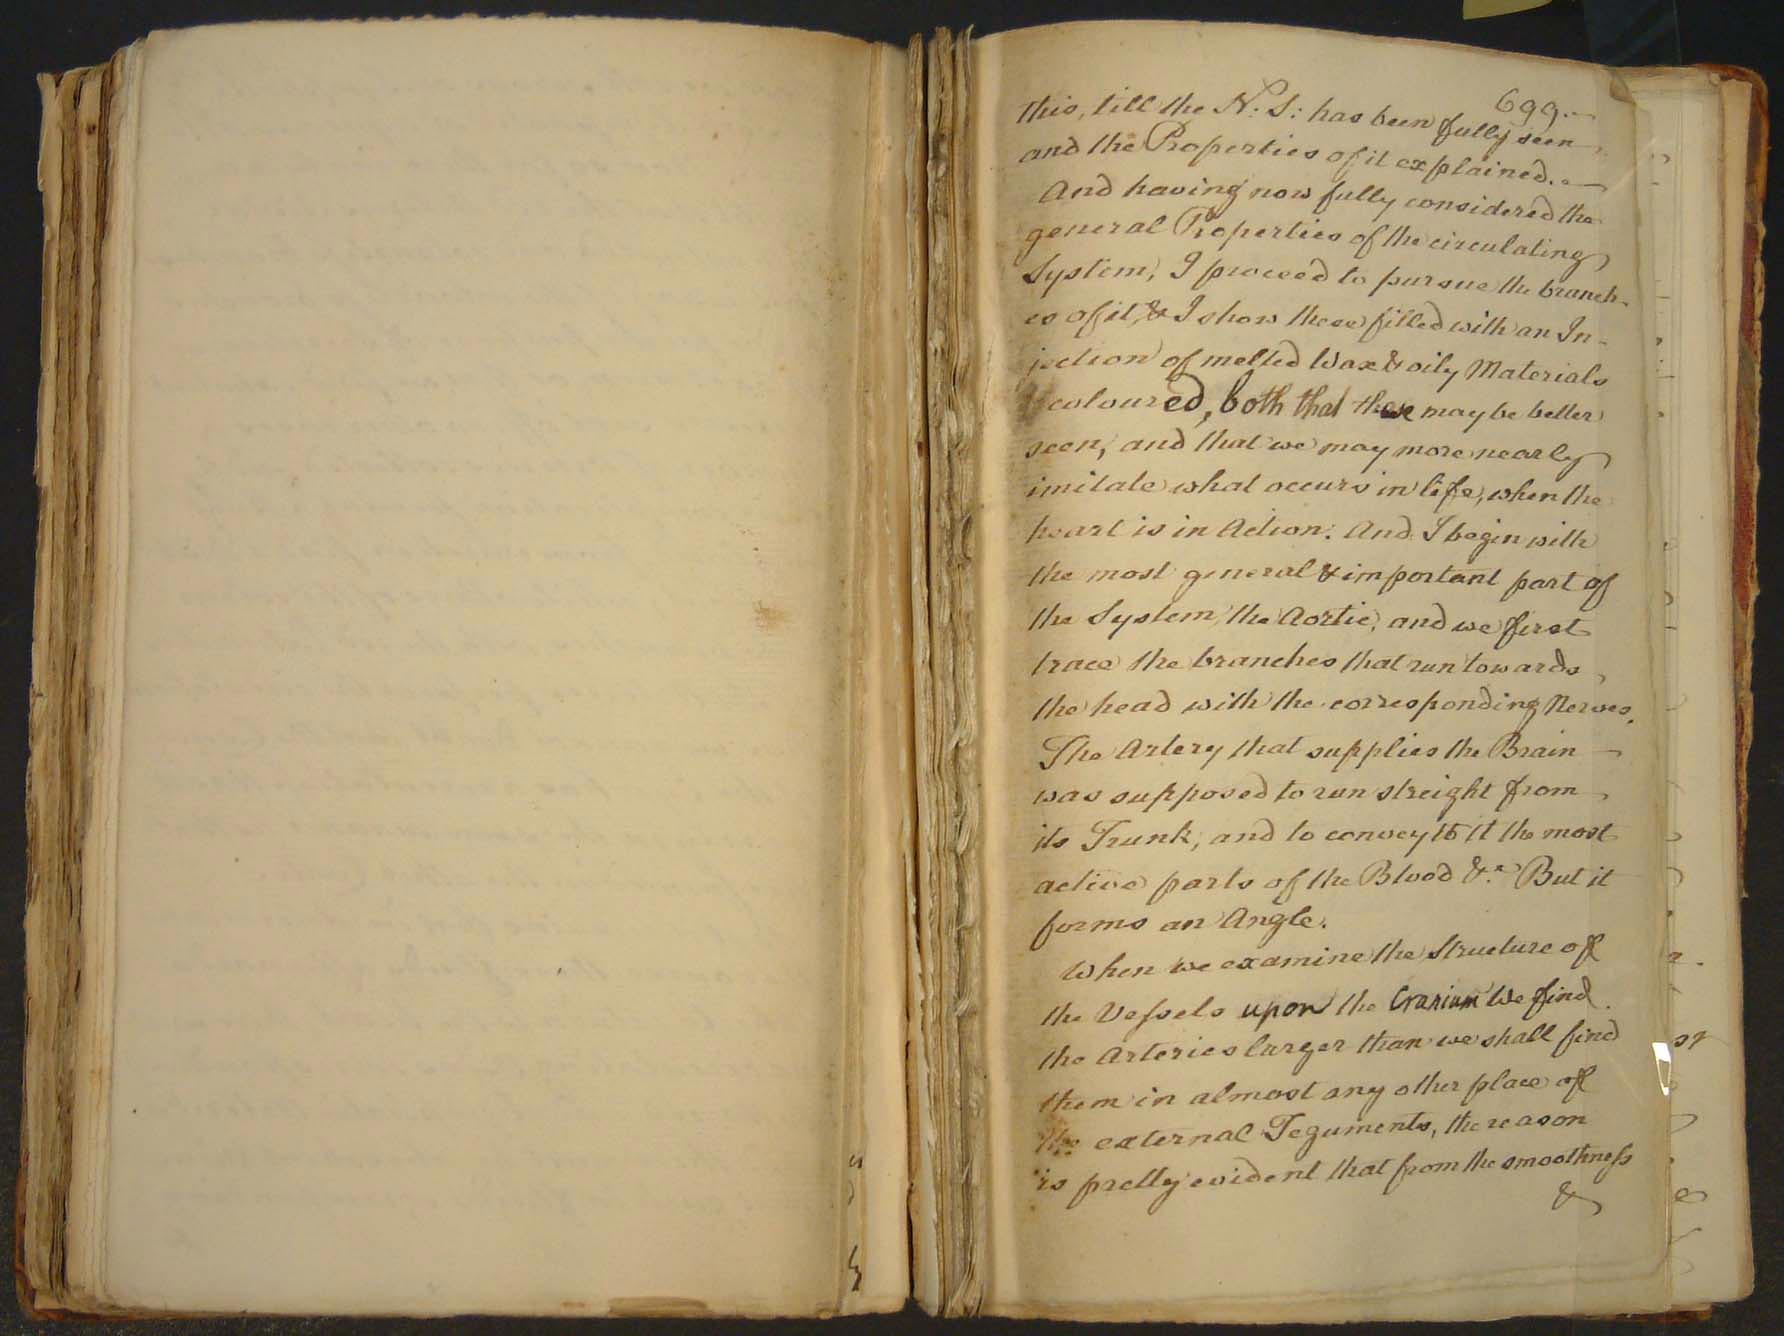 699.
this, till the N: S: has been fully seen
and the Properties of it explained.
And having now fully considered the
general Properties of the circulating
System, I proceed to pursue the branch-
es of it, & I show these filled with an In-
jection of melted Wax & oily Materials
coloured, both that these may be better
seen, and that we may more nearly
imitate what occurs in life, when the
heart is in Action. And I begin with
the most general & important part of
the System, the Aortic, and we first
trace the branches that run towards
the head with the corresponding Nerves.
The Artery that supplies the Brain
was supposed to run streight from
its Trunk, and to convey to it the most
active parts of the Blood &c. But it
forms an Angle.
When we examine the Structure of
the Vessels upon the Cranium We find
the Arteries larger than we shall find
them in almost any other place of
the external Teguments, the reason
is pretty evident that from the smoothness
&